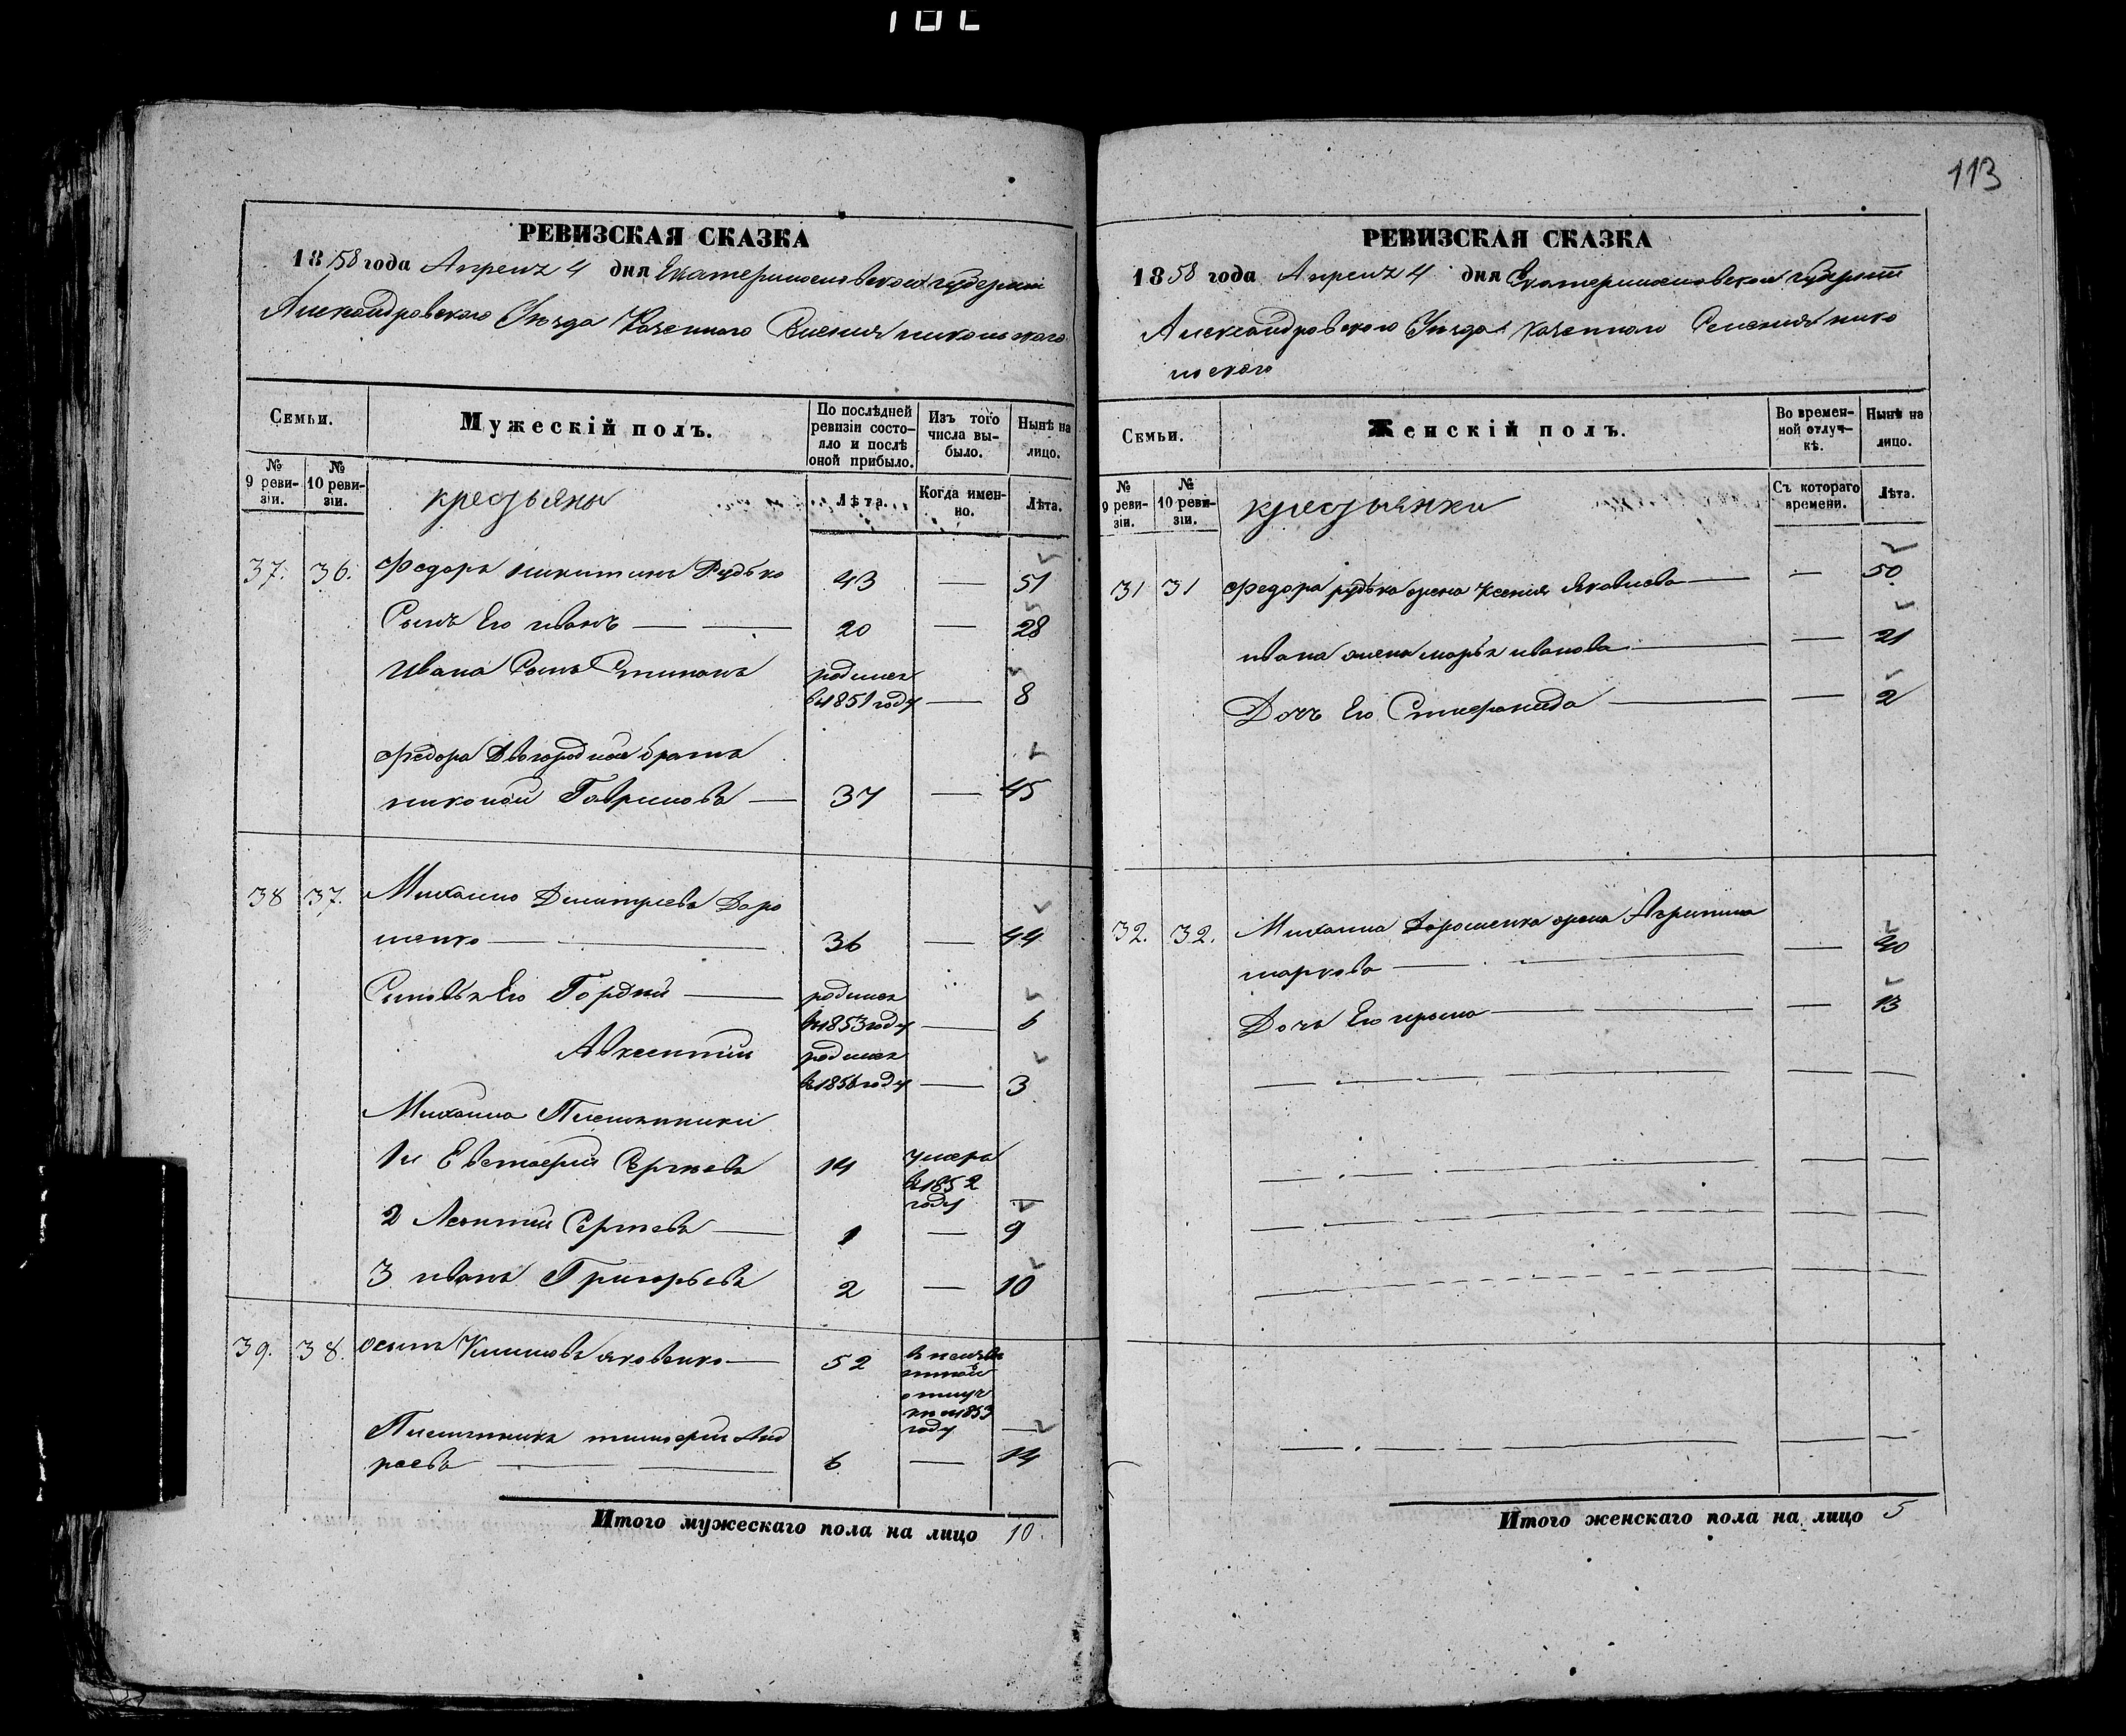 113
РЕВИЗСКАЯ СКАЗКА
1858 года Апреля 4 дня Екатеринославской губернии
Александровского Уезда Казенного Селения николь ского
Семьи.
Мужескій полъ.
По послѣдней ревизіи состо-
яло и послѣ
оной прибыло.
Изъ того
числа вы-
было.
Нынѣ на
лицо.
№
9 реви-
зіи.
№
10 реви-
зіи.
крестьяны
Лѣта.
Когда имен-
но.
Лѣта.
37. 36. Федоръ никитинъ Рудько 43 — 51
Сынъ Его иванъ — — 20 — 28
Ивана Сынъ Степанъ родился
въ 1851 году — 8
Федора Двоюродной братъ
николай Гавриловъ — 37 — 45
38 37. Михаило Дмитріевъ Доро
шенко — — 36 — 44
Сыновья Его Гордѣй — родился
въ 1853 году — 6
Авксентий родился
въ 1856 году — 3
Михаила Племянники
1й Евстафий Сергѣевъ 14 умеръ
въ 1852
году —
2 Леонтий Сергѣевъ — 1 — 9
3 иванъ Григорьевъ 2 — 10
39. 38. осипъ Климовъ яковенко — 52
отлуч
1853
году —
Племянникъ тимофей Анд
реевъ — — 6 — 14
Итого мужескаго пола на лицо 10.
РЕВИЗСКАЯ СКАЗКА
1858 года Апреля 4 дня Екатеринославской губернии
Александровского Уезда казенного Селения нико
льского
Семьи.
Женскій полъ.
Во времен-
ной отлуч-
кѣ.
Нынѣ на
лицо.
№
9 реви-
зіи.
№
10 реви-
зіи.
крестьянки
Съ котораго
времени.
Лѣта.
31 31 Федора рудька жена Ксения Яковлева — — 50
ивана жена марья иванова — — 21
Дочь Его Степанида — — 2
32. 32. Михаила Дорошенка жена Агрипина
маркова — — — 40
Дочь Его ироина — — — 13
Итого женскаго пола на лицо 5